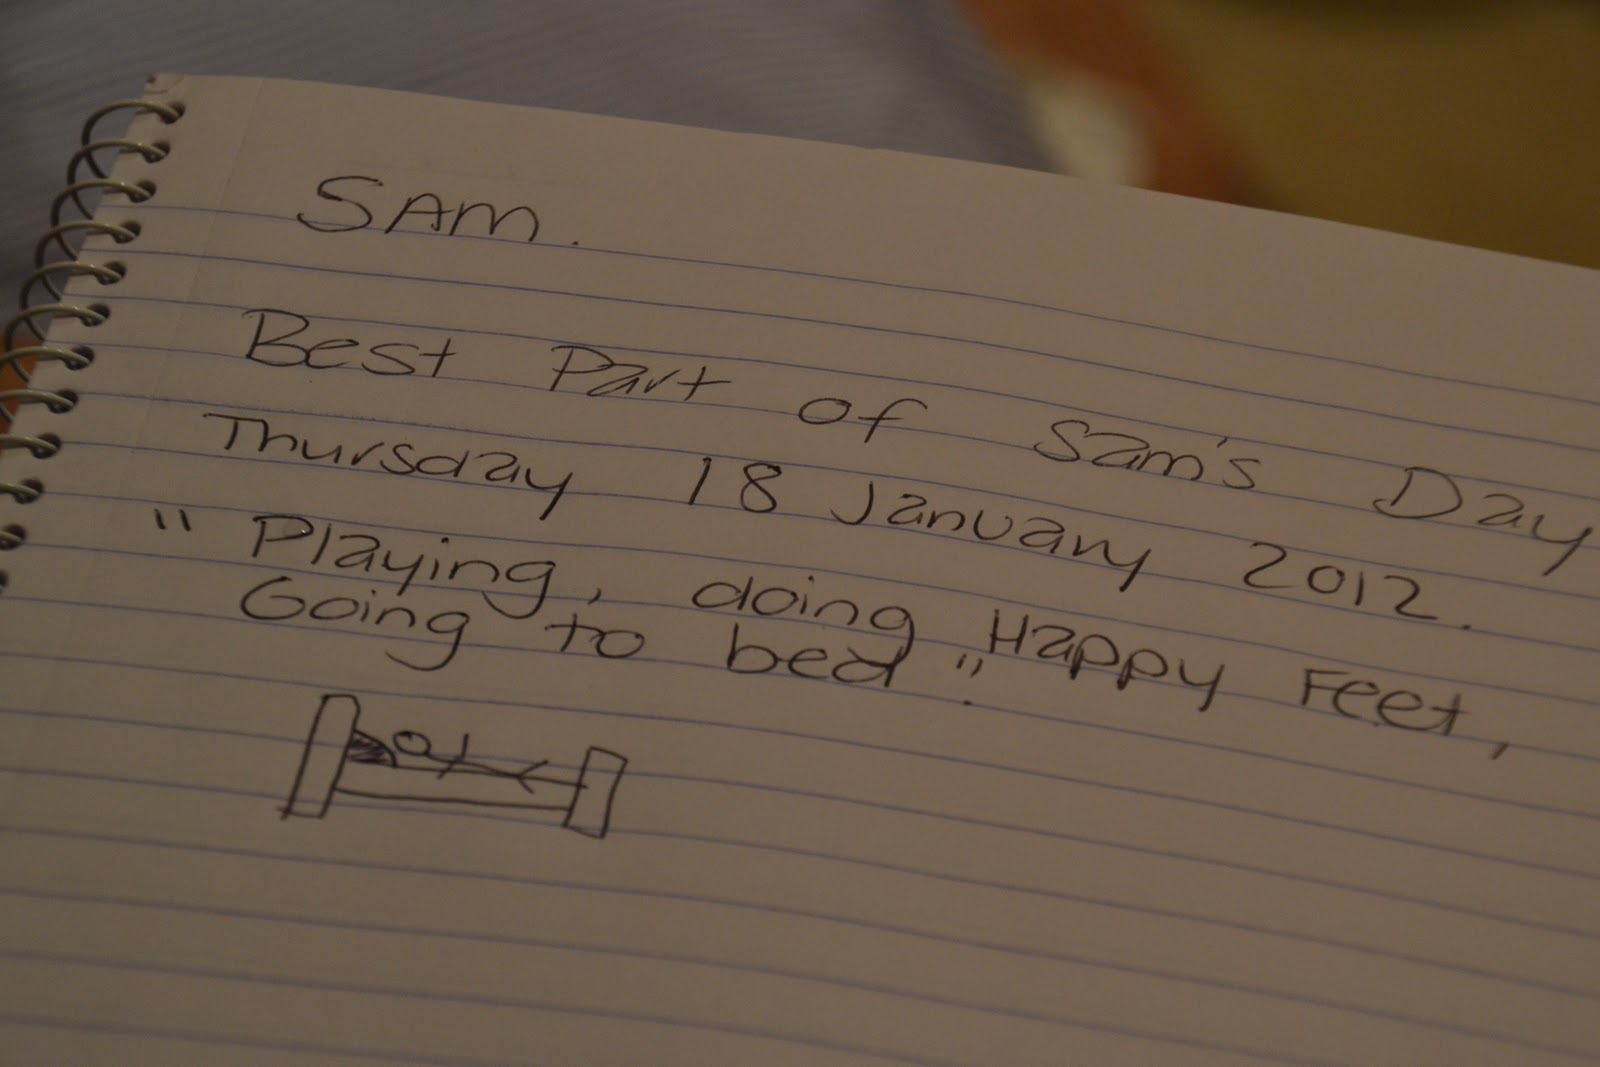 SAM.
Best Part of Sam's Day
Thursday 18 January 2012.
" Playing, doing Happy Feet,
Going to bed ".